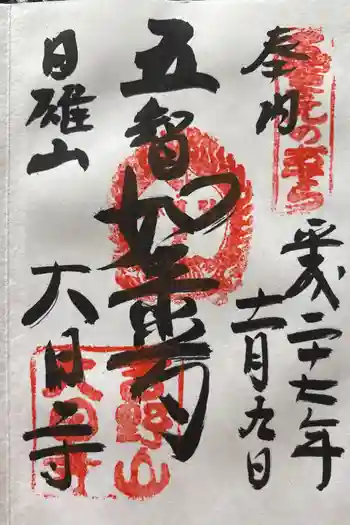 奉納
平成二十七年
十一月九日
五智如来
日雄山
大日寺